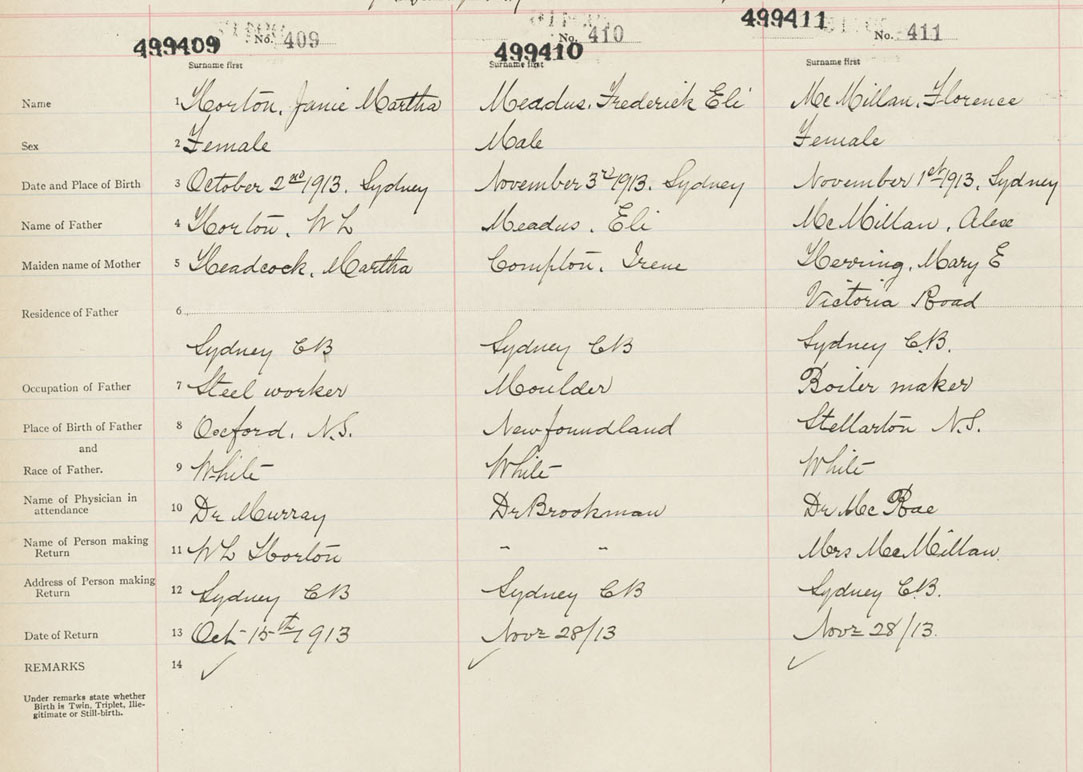 499409 No. 409 499410 No. 410 499411 No. 411
Surname first Surname first Surname first
Name 1 Horton, Janie Martha Meadus, Frederick Eli McMillan, Florence
Sex 2 Female Male Female
Date and Place of Birth 3 October 2nd 1913. Sydney November 3rd 1913. Sydney November 1st 1913, Sydney
Name of Father 4 Horton, W L Meadus, Eli McMillan, Alex
Maiden name of Mother 5 Headcock, Martha Compton, Irene Herring, Mary E
Residence of Father 6 Victoria Road
Sydney CB Sydney CB Sydney C.B.
Occupation of Father 7 Steel worker Moulder Boiler maker
Place of Birth of Father 8 Oxford, N.S. Newfoundland Stellarton N.S.
and
Race of Father. 9 White White White
Name of Physician in
attendance 10 Dr Murray Dr Brookman Dr McRae
Name of Person making
Return 11 W L Horton " " Mrs McMillan
Address of Person making
Return 12 Sydney CB Sydney CB Sydney C.B.
Date of Return 13 Oct 15th 1913 Novr 28/13 Novr 28/13.
REMARKS 14 ✓ ✓ ✓
Under remarks state whether
Birth is Twin, Triplet, Ille-
gitimate or Still-birth.